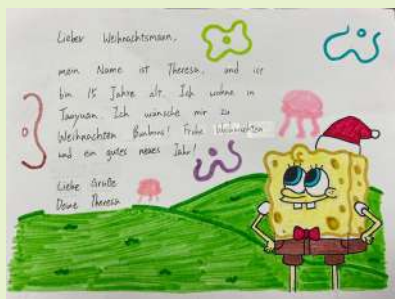 Lieber Weihnachtsmann,
mein Name ist Theresa, und ich
bin 15 Jahre alt. Ich wohne in
Taoyuan. Ich wünsche mir zu
Weihnachten Bonbons! Frohe Weihnachten
und ein gutes neues Jahr!
Liebe Grüße
Deine Theresa